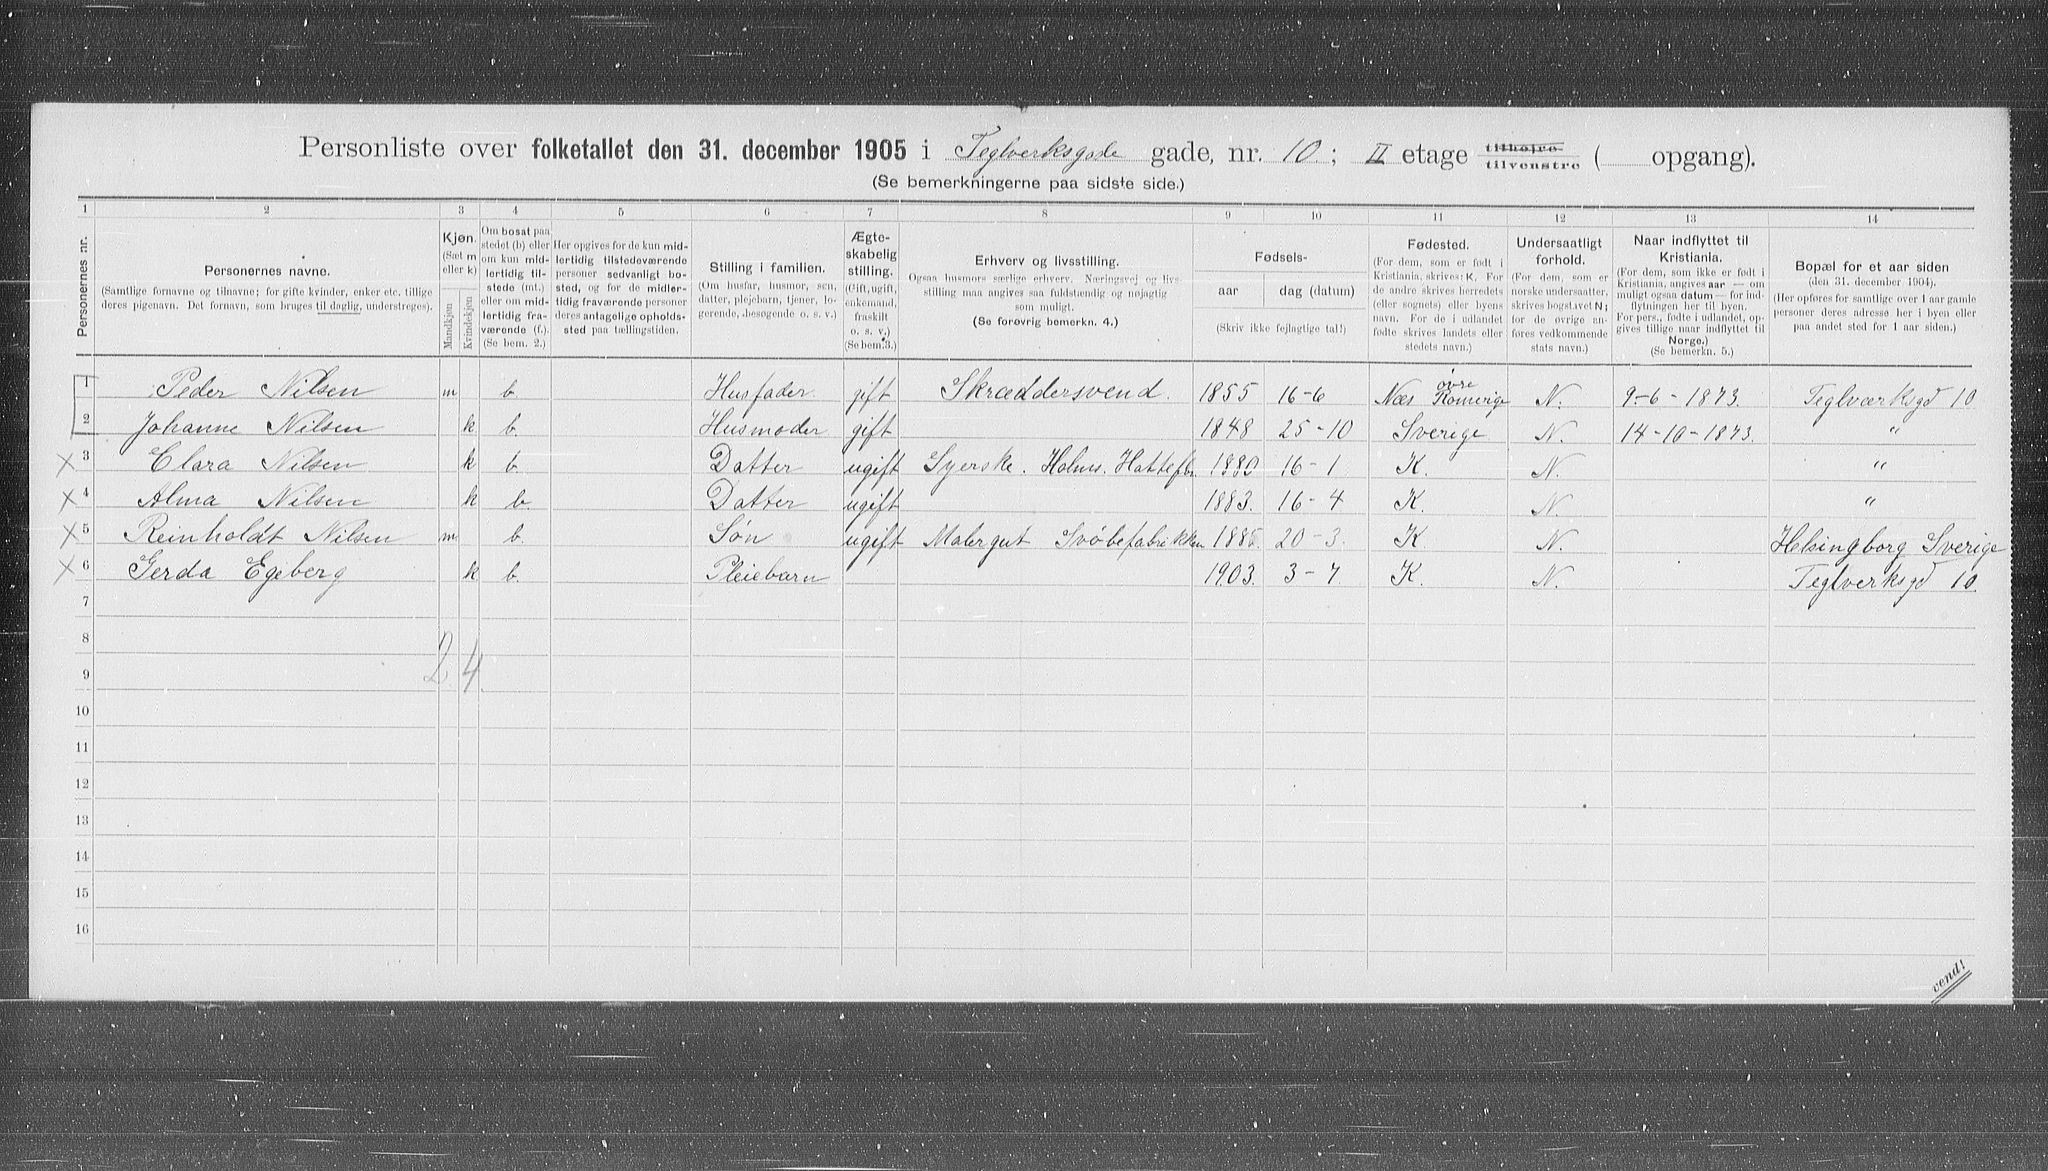 Personliste over folketallet den 31. december 1905 i Teglverksgade gade, nr. 10; II etage tilhøjre tilvenstre ( opgang).
(Se bemerkningerne paa sidste side.)
1 2 3 4 5 6 7 8 9 10 11 12 13 14
Personernes nr.
Personernes navne.
(Samtlige fornavne og tilnavne; for gifte kvinder, enker etc. tillige
deres pigenavn. Det fornavn, som bruges til daglig, understreges).
Kjøn.
(Sæt m
eller k)
Mandkjøn
Kvindekjøn
Om bosat paa
stedet (b) eller
om kun mid-
lertidig til-
stede (mt.)
eller om mid-
lertidig fra-
værende (f.)
(Se bem. 2.)
Her opgives for de kun mid-
lertidig tilstedeværende
personer sedvanligt bo-
sted, og for de midler-
tidig fraværende personer
deres antagelige opholds-
sted paa tællingstiden.
Stilling i familien.
(Om husfar, husmor, søn,
datter, plejebarn, tjener, lo-
gerende, besøgende o. s. v.)
Ægte-
skabelig
stilling.
(Gift, ugift,
enkemand,
fraskilt
o. s. v.)
(Se bem. 3.)
Erhverv og livsstilling.
Ogsaa husmors særlige erhverv. Næringsvej og livs-
stilling maa angives saa fuldstændig og nøjagtig
som muligt.
(Se forøvrig bemerkn. 4.)
Fødsels-
aar
dag (datum)
(Skriv ikke fejlagtige tal!)
Fødested.
(For dem, som er født i
Kristiania, skrives: K. For
de andre skrives herredets
(eller sognets) eller byens
navn. For de i udlandet
fødte skrives landets eller
stedets navn.)
Undersaatligt
forhold.
(For dem, som er
norske undersaatter,
skrives bogstavet N;
for de øvrige an-
føres vedkommende
stats navn.)
Naar indflyttet til
Kristiania.
(For dem, som ikke er født i
Kristiania, angives aar — om
muligt ogsaa datum — for ind-
flytningen her til byen.
For pers., fødte i udlandet, op-
gives tillige naar indflyttet til
Norge.)
(Se bemerkn. 5.)
Bopæl for et aar siden
(den 31. december 1904).
(Her opføres for samtlige over 1 aar gamle
personer deres adresse her i byen eller
paa andet sted for 1 aar siden.)
1 Peder Nilsen m b Husfader gift Skræddersvend. 1855 16-6 Næs øvre Romerige N. 9-6-1873. Teglværksgd 10
2 Johanne Nilsen k b. Husmoder gift 1848 25-10 Sverige N. 14-10-1873. "
3 Clara Nilsen k b. Datter ugift Syerske. Holms. Hattefbr. 1880 16-1 K. N. "
4 Alma Nilsen k b Datter ugift 1883. 16-4 K. N. "
5 Reinholdt Nilsen m b. Søn ugift Malergut Svøbefabrikken 1885. 20-3. K N. Helsingborg Sverige
6 Gerda Egeberg k b. Pleiebarn 1903. 3-7 K. N. Teglverksgd 10.
7
8
2 4
9
10
11
12
13
14
15
16
vend!